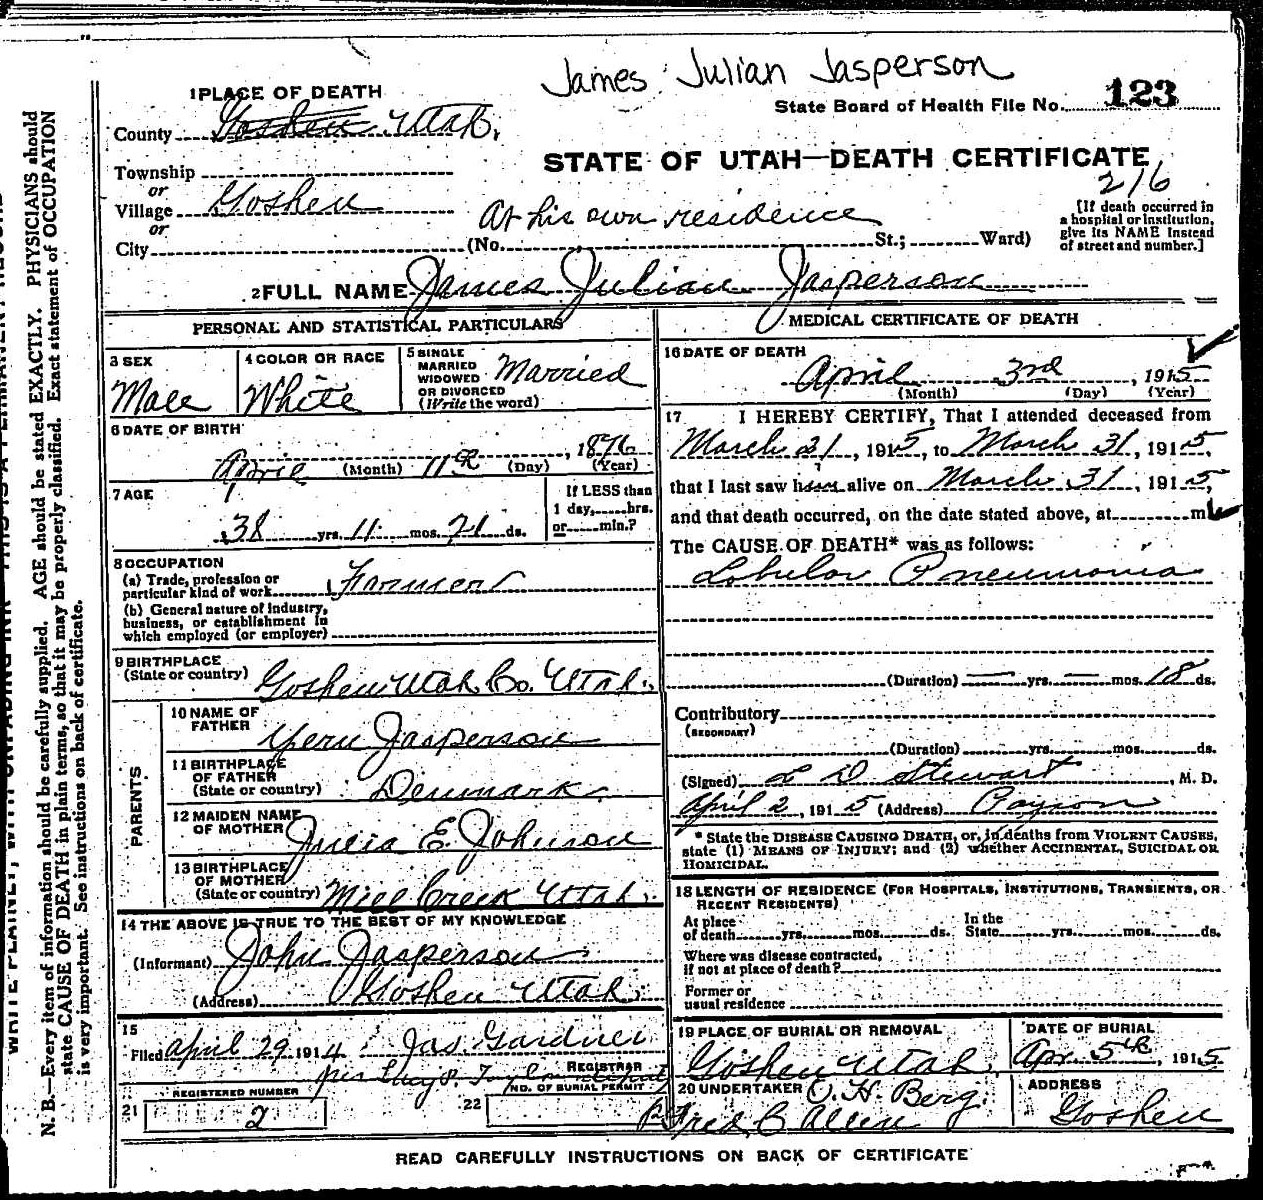 James Julian Jasperson
1 PLACE OF DEATH
State Board of Health File No. 123
County Goshen Utah.
STATE OF UTAH—DEATH CERTIFICATE
Township
or
216
Village Goshen
At his own residence
[If death occurred in a hospital or institution, give its NAME instead of street and number.]
or
City (No. St.; Ward)
2 FULL NAME James Julian Jasperson
PERSONAL AND STATISTICAL PARTICULARS
3 SEX Male
4 COLOR OR RACE White
5 SINGLE MARRIED WIDOWED OR DIVORCED (Write the word) Married
6 DATE OF BIRTH
April (Month) 11th (Day), 1876 (Year)
7 AGE
38 yrs. 11 mos. 21 ds.
If LESS than 1 day, hrs. or min.?
8 OCCUPATION
(a) Trade, profession or particular kind of work Farmer
(b) General nature of industry, business, or establishment in which employed (or employer)
9 BIRTHPLACE (State or country) Goshen Utah Co. Utah.
PARENTS
10 NAME OF FATHER Yern Jasperson
11 BIRTHPLACE OF FATHER (State or country) Denmark.
12 MAIDEN NAME OF MOTHER Julia E. Johnson
13 BIRTHPLACE OF MOTHER (State or country) Mill Creek Utah.
14 THE ABOVE IS TRUE TO THE BEST OF MY KNOWLEDGE
(Informant) John Jasperson
(Address) Goshen Utah.
15
Filed April 29, 1914 Jas. Gardner
REGISTRAR
REGISTERED NUMBER
NO. OF BURIAL PERMIT
21 2
22
MEDICAL CERTIFICATE OF DEATH
16 DATE OF DEATH
April (Month) 3rd (Day), 1915 (Year)
17 I HEREBY CERTIFY, That I attended deceased from
March 21, 1915, to March 31, 1915,
that I last saw him alive on March 31, 1915,
and that death occurred, on the date stated above, at m
The CAUSE OF DEATH* was as follows:
Lobular Pneumonia
(Duration) — yrs. — mos. 18 ds.
Contributory
(SECONDARY)
(Duration) yrs. mos. ds.
(Signed) L D Stewart, M. D.
April 2, 1915 (Address) Payson
* State the DISEASE CAUSING DEATH, or, in deaths from VIOLENT CAUSES,
state (1) MEANS OF INJURY; and (2) whether ACCIDENTAL, SUICIDAL OR
HOMICIDAL.
18 LENGTH OF RESIDENCE (FOR HOSPITALS, INSTITUTIONS, TRANSIENTS, OR
RECENT RESIDENTS)
At place of death yrs. mos. ds. In the State yrs. mos. ds.
Where was disease contracted,
if not at place of death?
Former or
usual residence
19 PLACE OF BURIAL OR REMOVAL Goshen Utah.
DATE OF BURIAL Apr. 5th, 1915
20 UNDERTAKER O. H. Berg.
Fred C Allen
ADDRESS Goshen
READ CAREFULLY INSTRUCTIONS ON BACK OF CERTIFICATE
N. B.—Every item of information should be carefully supplied. AGE should be stated EXACTLY. PHYSICIANS should
state CAUSE OF DEATH in plain terms, so that it may be properly classified. Exact statement of OCCUPATION
is very important. See instructions on back of certificate.